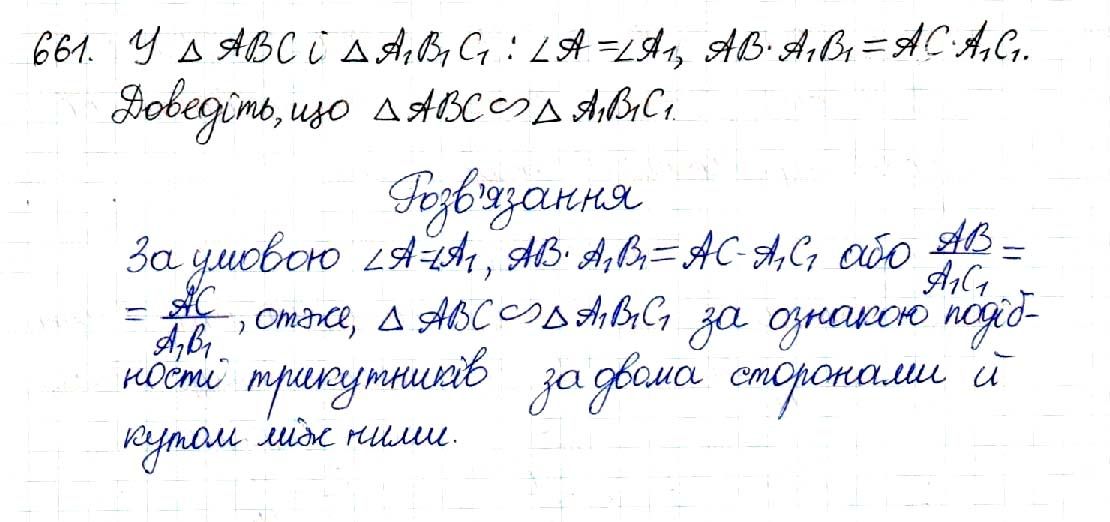 661. У △ ABC і △ A₁B₁C₁ : ∠A = ∠A₁, AB · A₁B₁ = AC · A₁C₁.
Доведіть, що △ ABC ∽ △ A₁B₁C₁.
Розв'язання
За умовою ∠A = ∠A₁, AB · A₁B₁ = AC · A₁C₁ або AB/A₁C₁ =
= AC/A₁B₁, отже, △ ABC ∽ △ A₁B₁C₁ за ознакою подіб-
ності трикутників за двома сторонами й
кутом між ними.